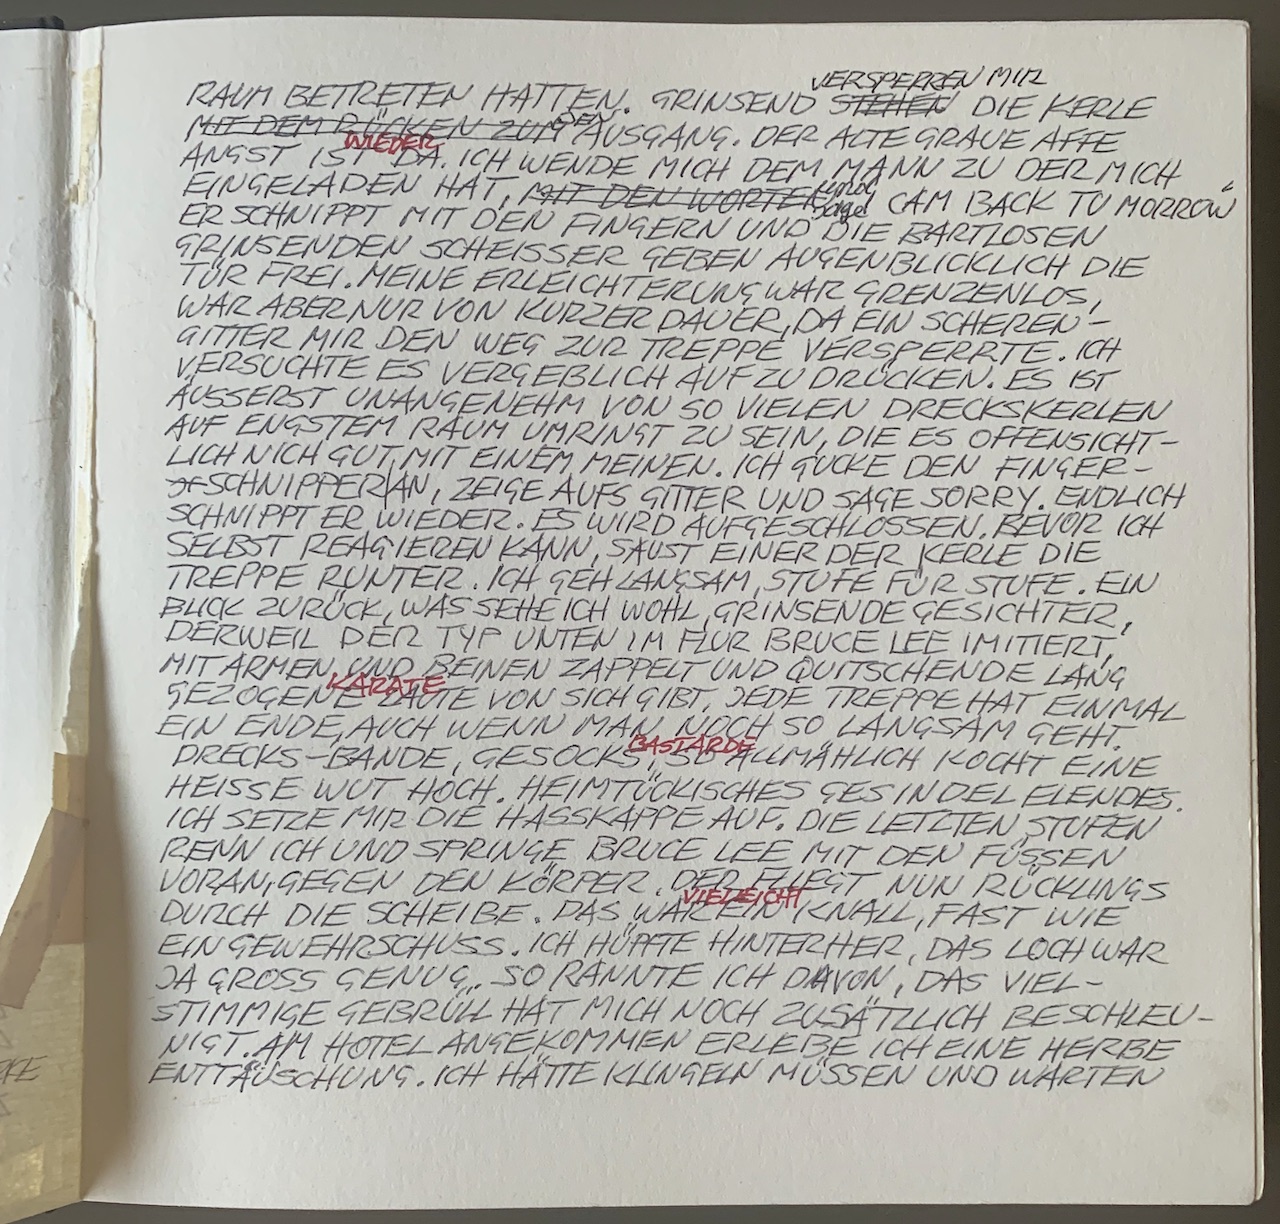 VERSPERREN MIR
RAUM BETRETEN HATTEN. GRINSEND STEHEN DIE KERLE
DEN
MIT DEM RÜCKEN ZUM AUSGANG. DER ALTE GRAUE AFFE
WIEDER
ANGST IST DA. ICH WENDE MICH DEM MANN ZU DER MICH
EINGELADEN HAT, MIT DEN WORTEN und sage CAM BACK TO MORROW"
ER SCHNIPPT MIT DEN FINGERN UND DIE BARTLOSEN
GRINSENDEN SCHEISSER GEBEN AUGENBLICKLICH DIE
TÜR FREI. MEINE ERLEICHTERUNG WAR GRENZENLOS,
WAR ABER NUR VON KURZER DAUER, DA EIN SCHEREN-
GITTER MIR DEN WEG ZUR TREPPE VERSPERRTE. ICH
VERSUCHTE ES VERGEBLICH AUFZUDRÜCKEN. ES IST
ÄUSSERST UNANGENEHM VON SO VIELEN DRECKSKERLEN
AUF ENGSTEM RAUM UMRINGT ZU SEIN, DIE ES OFFENSICHT-
LICH NICH GUT MIT EINEM MEINEN. ICH GUCKE DEN FINGER-
SCHNIPPER AN, ZEIGE AUFS GITTER UND SAGE SORRY. ENDLICH
SCHNIPPT ER WIEDER. ES WIRD AUFGESCHLOSSEN. BEVOR ICH
SELBST REAGIEREN KANN, SAUST EINER DER KERLE DIE
TREPPE RUNTER. ICH GEH LANGSAM, STUFE FÜR STUFE. EIN
BLICK ZURÜCK, WAS SEHE ICH WOHL, GRINSENDE GESICHTER,
DERWEIL DER TYP UNTEN IM FLUR BRUCE LEE IMITIERT,
MIT ARMEN UND BEINEN ZAPPELT UND QUITSCHENDE LANG
KARATE
GEZOGENE LAUTE VON SICH GIBT. JEDE TREPPE HAT EINMAL
EIN ENDE, AUCH WENN MAN NOCH SO LANGSAM GEHT.
BASTARDE
DRECKS-BANDE, GESOCKS, SO ALLMÄHLICH KOCHT EINE
HEISSE WUT HOCH. HEIMTÜCKISCHES GESINDEL ELENDES.
ICH SETZE MIR DIE HASSKAPPE AUF. DIE LETZTEN STUFEN
RENN ICH UND SPRINGE BRUCE LEE MIT DEN FÜSSEN
VORAN, GEGEN DEN KÖRPER. DER FLIEGT NUN RÜCKLINGS
VIELEICHT
DURCH DIE SCHEIBE. DAS WAR EIN KNALL, FAST WIE
EIN GEWEHRSCHUSS. ICH HÜPFTE HINTERHER, DAS LOCH WAR
JA GROSS GENUG. SO RANNTE ICH DAVON, DAS VIEL-
STIMMIGE GEBRÜLL HAT MICH NOCH ZUSÄTZLICH BESCHLEU-
NIGT. AM HOTEL ANGEKOMMEN ERLEBE ICH EINE HERBE
ENTTÄUSCHUNG. ICH HÄTTE KLINGELN MÜSSEN UND WARTEN